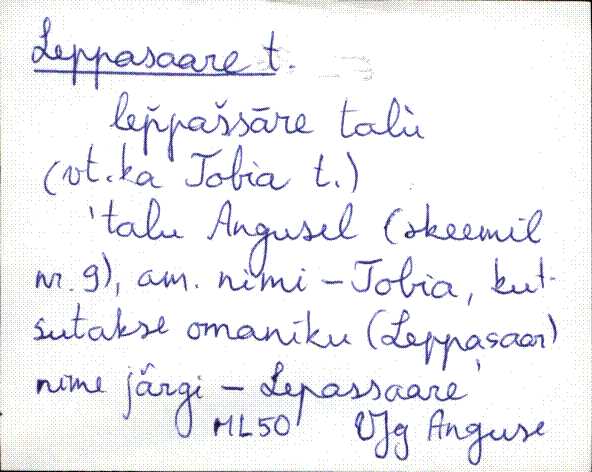 Leppasaare t.
lep̆pašsāre talù
(vt. ka Tobia t.)
'talu Angusel (skeemil
nr. 9), am. nimi – Tobia, kut-
sutakse omaniku (Leppasaar)
nime järgi – Lepassaare'
ML50 VJg Anguse